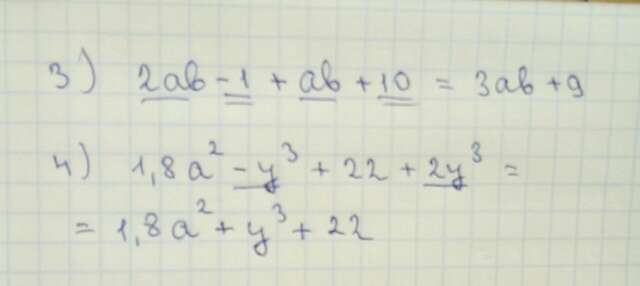 3) 2ab - 1 + ab + 10 = 3ab + 9
4) 1,8a² - y³ + 22 + 2y³ =
= 1,8a² + y³ + 22